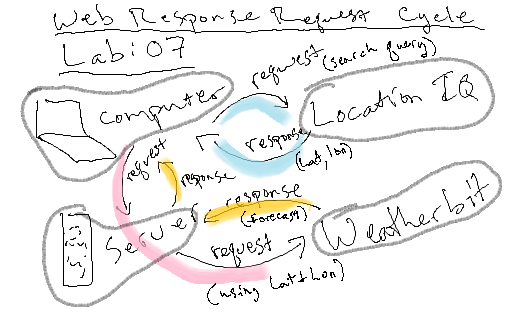 Web Response Request Cycle
Lab: 07
request
(search query)
Computer
Location IQ
response
(Lat, lon)
request
response
response
(forecast)
Server
Weatherbit
request
(using lat + lon)